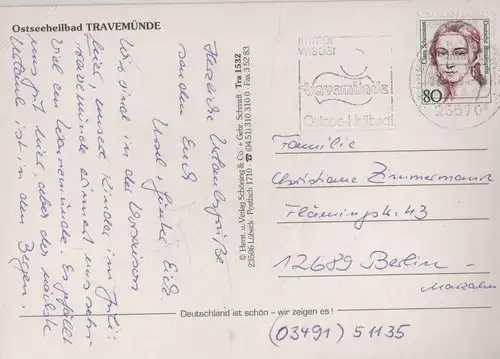 Ostseeheilbad TRAVEMÜNDE
Herzliche Urlaubsgrüße
senden Euch
Wir sind in der Vorsaison
hier, unsere Kinder im Juli.
Travemünde erinnert uns sehr
viel an Warnemünde. Es gefällt
uns gut hier, aber der nächste
Urlaub ist in den Bergen.
© Herst. u. Verlag Schöning & Co. + Gebr. Schmidt · Tra 1532
23506 Lübeck · Postfach 1710 · ☎ (04 51) 310 310 0 · Fax 3 52 83
Deutschland ist schön – wir zeigen es !
immer
wieder
Travemünde
Ostsee-Heilbad
23570
80
Deutsche Bundespost
Clara Schumann
Familie
Christiane Zimmermann
Flämingstr. 43
12689 Berlin -
Marzahn
(03491) 51135